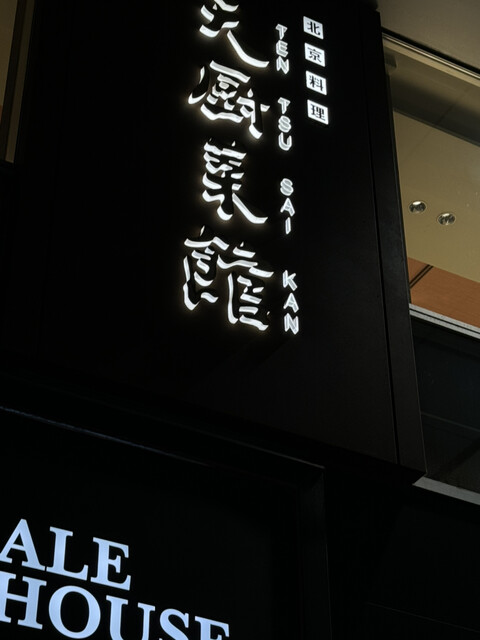 北京料理
TEN TSU SAI KAN
天厨菜館
ALE
HOUSE